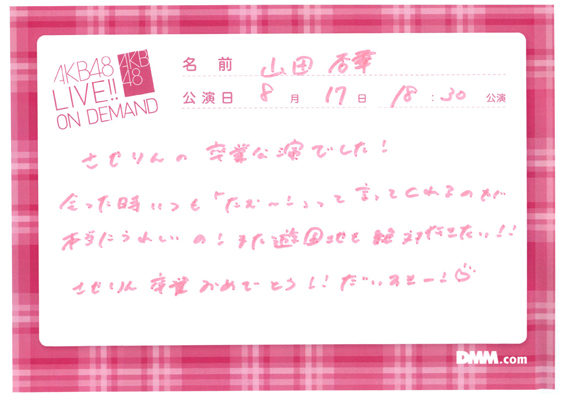 AKB48
LIVE!!
ON DEMAND
AKB
48
名前 山田 杏華
公演日 8月17日 18:30 公演
させりんの 卒業公演でした!
会った時いつも「だぉ〜!」って言ってくれるのが
本当にうれしいの!また遊園地も絶対行きたい!!
させりん 卒業おめでとう!!だいすきー!
DMM.com